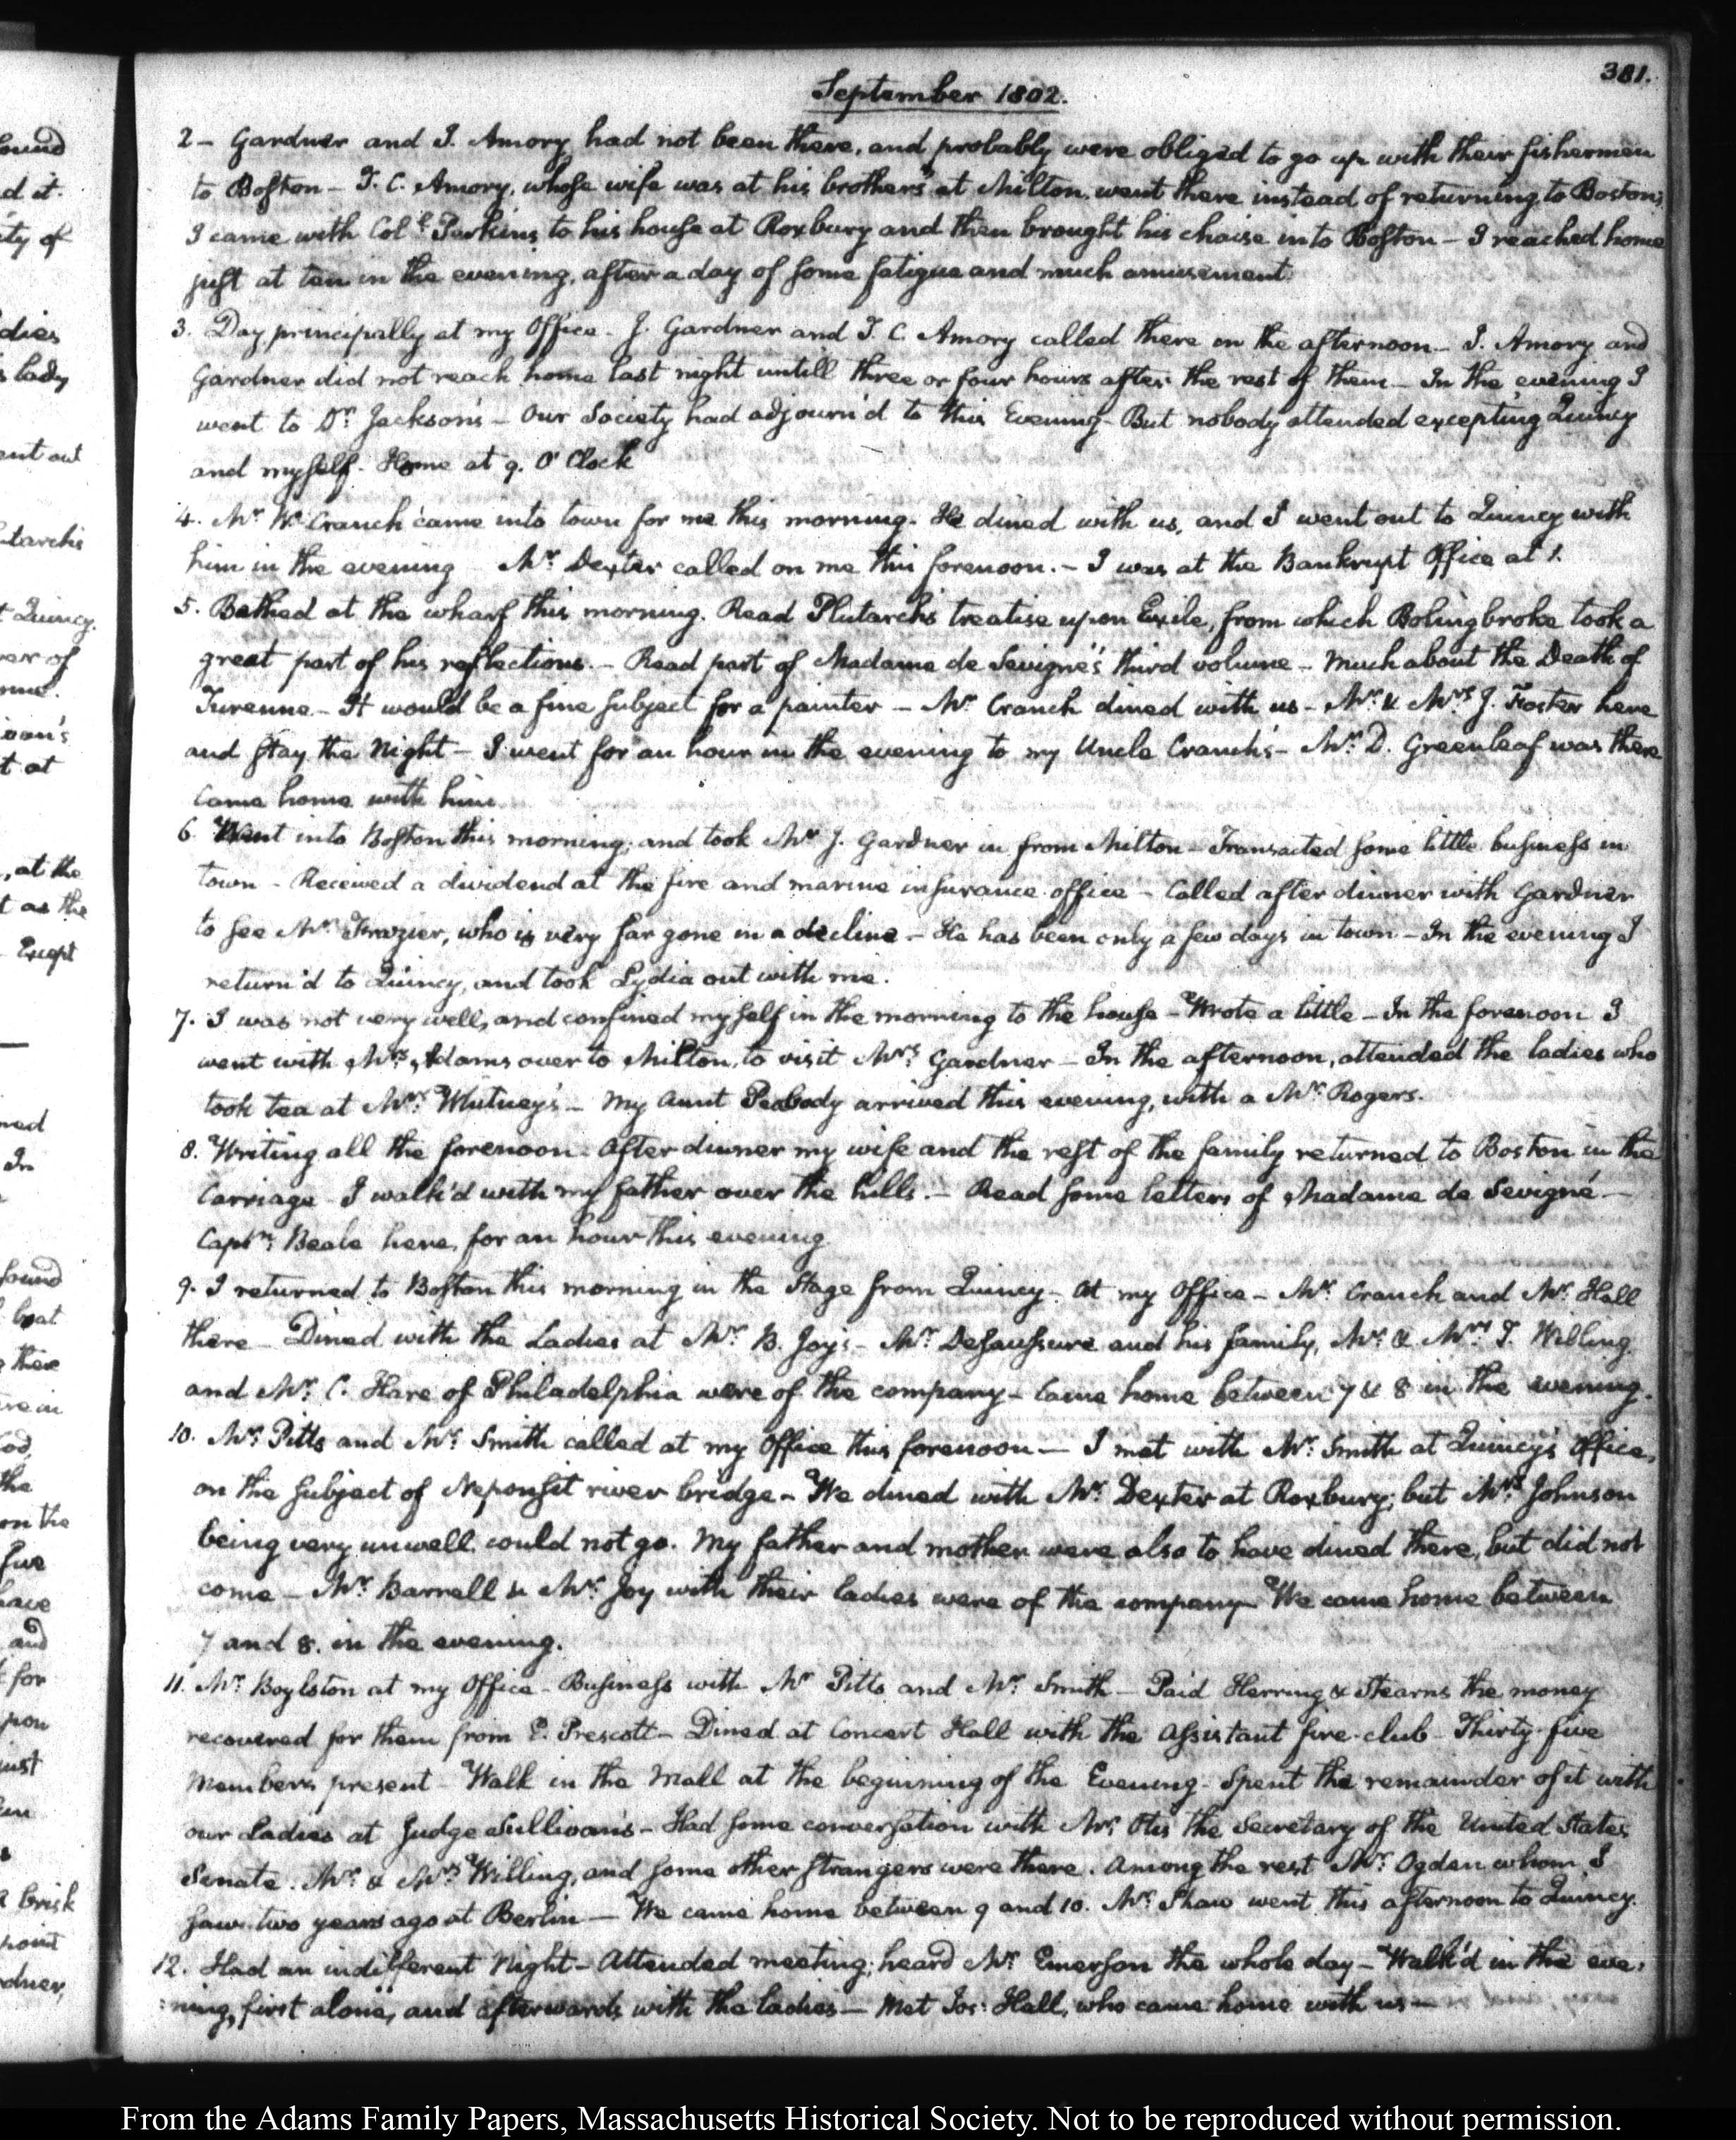 381.
September 1802.
2 - Gardner and J. Amory had not been there, and probably were obliged to go up with their fishermen
to Boston - T. C. Amory, whose wife was at his brother's at Milton, went there instead of returning to Boston;
I came with Coll. Perkins to his house at Roxbury and then brought his chaise into Boston - I reached home
just at ten in the evening, after a day of some fatigue and much amusement.
3. Day principally at my Office - J. Gardner and T. C. Amory called there in the afternoon - J. Amory and
Gardner did not reach home last night untill three or four hours after the rest of them - In the evening I
went to Dr. Jackson's - Our Society had adjourn'd to this Evening - But nobody attended excepting Quincy
and myself - Home at 9. O'Clock
4. Mr. W. Cranch came into town for me this morning. He dined with us, and I went out to Quincy with
him in the evening Mr. Dexter called on me this forenoon. - I was at the Bankrupt Office at 1.
5. Bathed at the wharf this morning. Read Plutarch's treatise upon Exile, from which Bolingbroke took a
great part of his reflections. - Read part of Madame de Sevigné's third volume - Much about the Death of
Turenne - It would be a fine subject for a painter - Mr. Cranch dined with us - Mr. & Mrs. J. Foster here
and stay the night - I went for an hour in the evening to my Uncle Cranch's - Mr. D. Greenleaf was there
Came home with him
6. Went into Boston this morning, and took Mr. J. Gardner in from Milton - Transacted some little business in
town - Received a dividend at the fire and marine insurance office - Called after dinner with Gardner
to see Mr. Frazier, who is very far gone in a decline - He has been only a few days in town - In the evening I
return'd to Quincy, and took Lydia out with me.
7. I was not very well, and confined myself in the morning to the house - Wrote a little - In the forenoon I
went with Mrs. Adams over to Milton, to visit Mrs. Gardner - In the afternoon, attended the ladies who
took tea at Mr. Whitney's - My Aunt Peabody arrived this evening, with a Mr. Rogers.
8. Writing all the forenoon. After dinner my wife and the rest of the family returned to Boston in the
Carriage - I walk'd with my father over the hills. - Read some letters of Madame de Sevigné -
Captn. Beale here, for an hour this evening
9. I returned to Boston this morning in the Stage from Quincy - At my Office - Mr. Cranch and Mr. Hall
there - Dined with the Ladies at Mr. B. Joy's - Mr. Desaussure and his family, Mr. & Mrs. T. Willing
and Mr. C. Hare of Philadelphia were of the company - Came home between 7 & 8 in the evening.
10. Mr. Pitts and Mr. Smith called at my Office this forenoon - I met with Mr. Smith at Quincy's Office,
on the subject of Neponsit river bridge - We dined with Mr. Dexter at Roxbury; but Mrs. Johnson
being very unwell could not go. My father and mother were also to have dined there, but did not
come - Mr. Barrell & Mr. Joy with their ladies were of the company - We came home between
7 and 8. in the evening.
11. Mr. Boylston at my Office - Business with Mr. Pitts and Mr. Smith - Paid Herring & Stearns the money
recovered for them from E. Prescott - Dined at Concert Hall with the Assistant fire-club - Thirty-five
Members present - Walk in the Mall at the beginning of the Evening - Spent the remainder of it with
our Ladies at Judge Sullivan's - Had some conversation with Mr. Otis the Secretary of the United States
Senate. Mr. & Mrs. Willing, and some other strangers were there. Among the rest Mr. Ogden whom I
saw two years ago at Berlin - We came home between 9 and 10. Mr. Shaw went this afternoon to Quincy.
12. Had an indifferent Night - Attended meeting; heard Mr. Emerson the whole day - Walk'd in the eve:
:ning, first alone, and afterwards with the ladies - Met Jos: Hall, who came home with us -
From the Adams Family Papers, Massachusetts Historical Society. Not to be reproduced without permission.